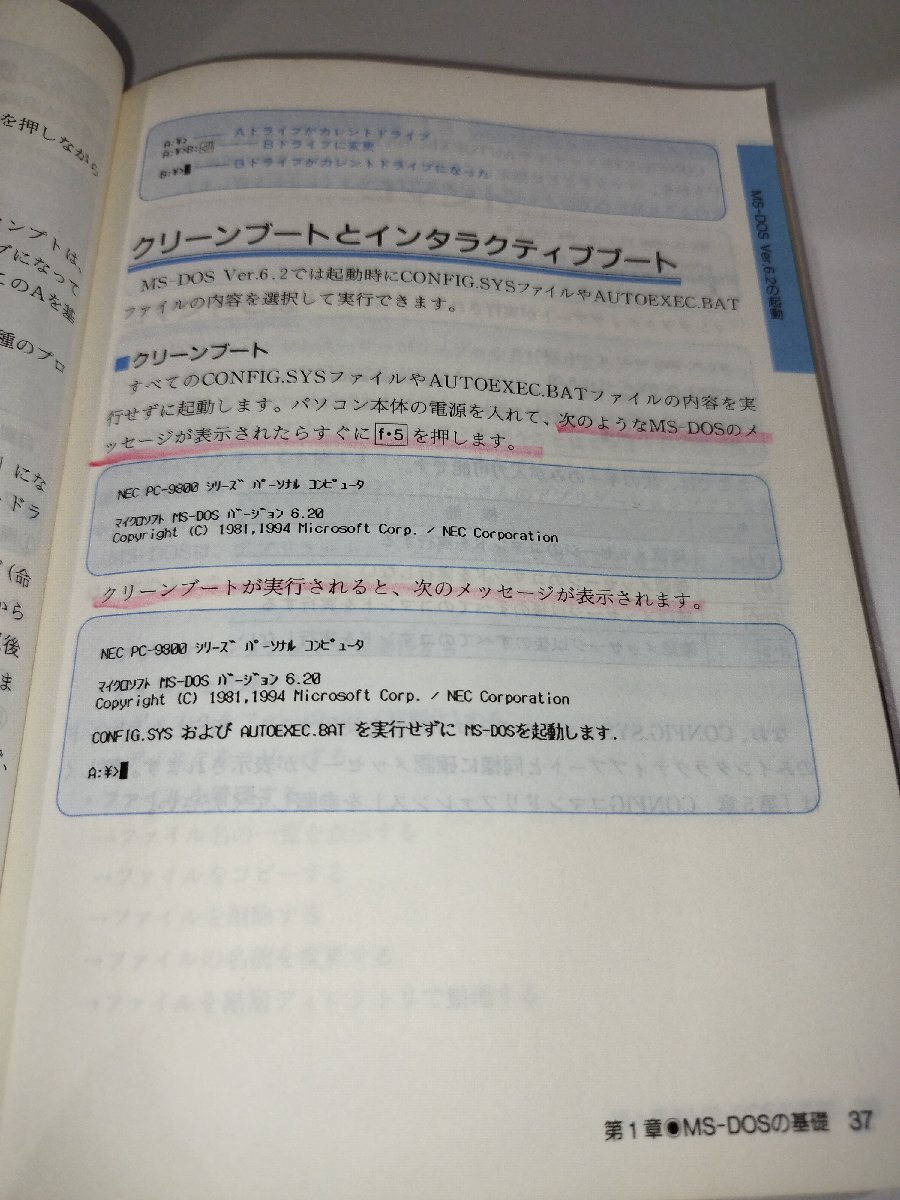 を押しながら
ンプトは、
ブになって
このAを基
種のプロ
」にな
ドラ
(命
から
後
ま
A:¥> Aドライブがカレントドライブ
A:¥>B: Bドライブに変更
B:¥> Bドライブがカレントドライブになった
MS-DOS Ver.6.2の起動
クリーンブートとインタラクティブブート
MS-DOS Ver.6.2では起動時にCONFIG.SYSファイルやAUTOEXEC.BAT
ファイルの内容を選択して実行できます。
■クリーンブート
すべてのCONFIG.SYSファイルやAUTOEXEC.BATファイルの内容を実
行せずに起動します。パソコン本体の電源を入れて、次のようなMS-DOSのメ
ッセージが表示されたらすぐに f・5 を押します。
NEC PC-9800 シリーズ パーソナル コンピュータ
マイクロソフト MS-DOS バージョン 6.20
Copyright (C) 1981,1994 Microsoft Corp. / NEC Corporation
クリーンブートが実行されると、次のメッセージが表示されます。
NEC PC-9800 シリーズ パーソナル コンピュータ
マイクロソフト MS-DOS バージョン 6.20
Copyright (C) 1981,1994 Microsoft Corp. / NEC Corporation
CONFIG.SYS および AUTOEXEC.BAT を実行せずに MS-DOSを起動します.
A:¥>
第1章●MS-DOSの基礎 37